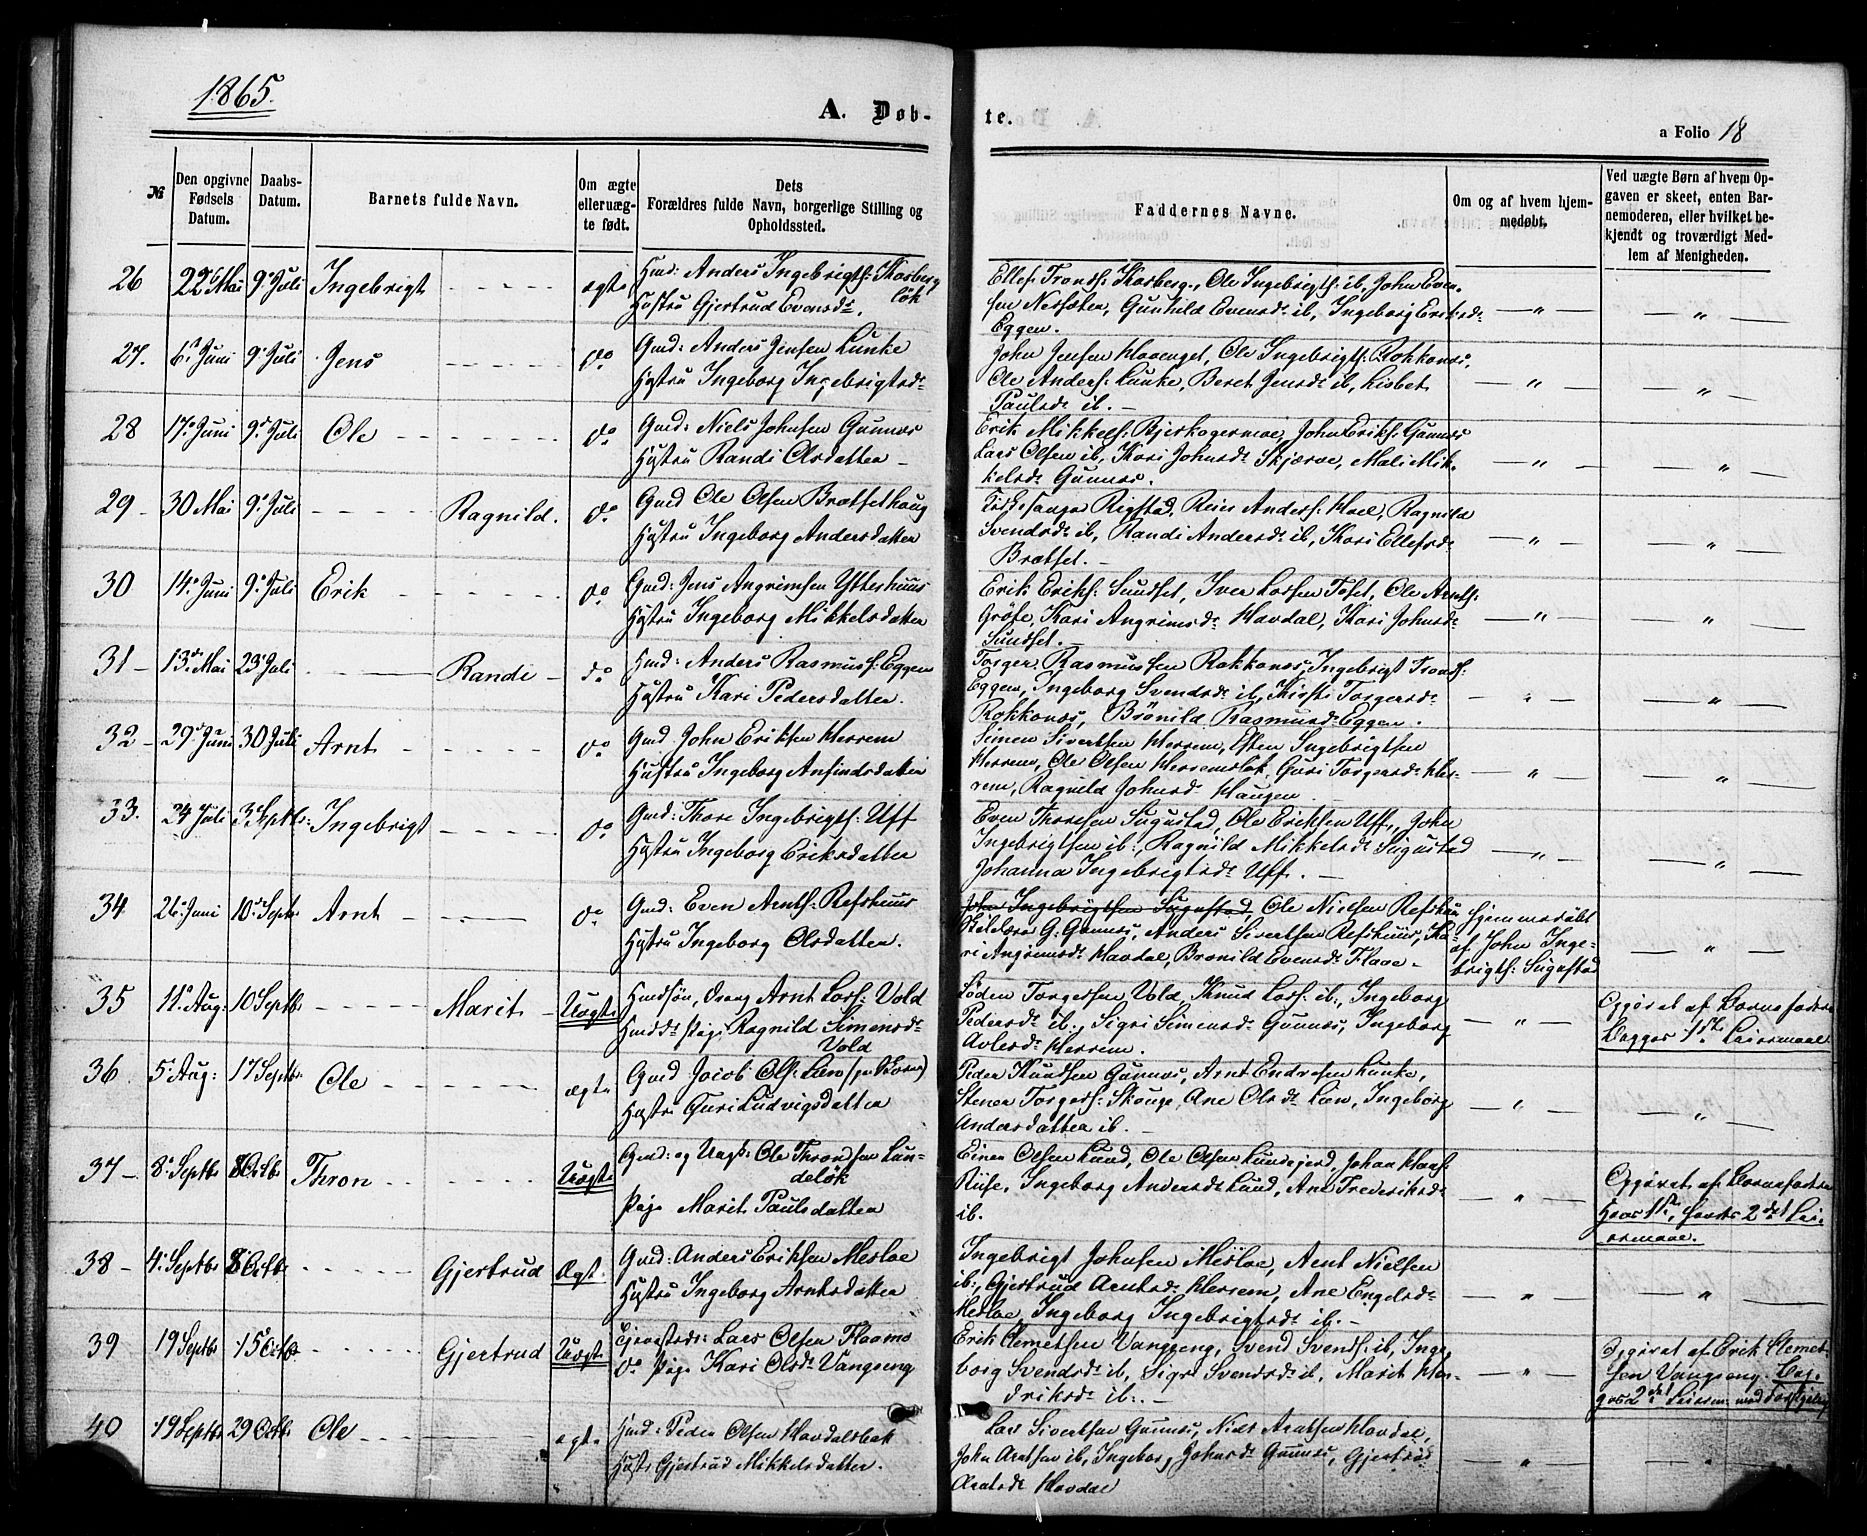 1865.
A. Døb-
te.
a Folio 18
№
Den opgivne Fødsels Datum.
Daabs-Datum.
Barnets fulde Navn.
Om ægte eller uægte født.
Dets Forældres fulde Navn, borgerlige Stilling og Opholdssted.
Faddernes Navne.
Om og af hvem hjemmedøbt.
Ved uægte Børn af hvem Opgaven er skeet, enten Barnemoderen, eller hvilket bekjendt og troværdigt Medlem af Menigheden.
26 22 Mai 9 Juli Ingebrigt ægte Hmd: Anders Ingebrigts: Kosberg
løk
Hustru Gjertrud Evensd.
Ellef Tronds: Kosberg, Ole Ingebrigts: ib, John Even-
sen Nesseter, Gunhild Evensd ib, Ingeborg Eriksd
Eggen.
27. 6 Juni 9 Juli Jens do Gmd: Anders Jensen Lunke
Hustru Ingeborg Ingebrigtsd
John Jensen Havenget, Ole Ingebrigts: Rokkones,
Ole Anders: Lunke, Beret Jensd ib, Lisbet
Paulsd ib.
28 17 Juni 9 Juli Ole do Gmd: Niels Johnsen Gunnes
Hustru Randi Olsdatter
Erik Mikkels: Bjerkagermoe, John Eriks: Gunnes
Lars Olsen ib, Kari Johnsd Skjerve, Mali Mik-
kelsd Gunnes.
29 30 Mai 9 Juli Ragnild. do Gmd Ole Olsen Bratsethaug
Hustru Ingeborg Andersdatter
Rigstad, Reier Anders: Hoel, Ragnild
Svendsd ib, Randi Andersd ib, Kari Ellefsd
Brætset.
30 14 Juni 9 Juli Erik do Gmd: Jens Angrimsen Ytterhuus
Hustru Ingeborg Mikkelsdatter
Erik Eriks: Sundset, Iver Larsen Toset, Ole Arnts:
Gröte, Kari Angrimsd Havdal, Kari Johnsd
Sundset.
31 13 Mai 23 Juli Randi do Hmd: Anders Rasmuss: Eggen
Hustru Kari Pedersdatter.
Torger Rasmussen Rokkones, Ingebrigt Tronds:
Eggen, Ingeborg Svendsd ib, Kirsti Torgersd
Rokkones, Brönild Rasmusd Eggen.
32 29 Juni 30 Juli Arnt do Gmd John Eriksen Herrem
Hustru Ingeborg Anfindsdatter
Simen Sivertsen Herrem, Esten Ingebrigtsen
Herrem, Ole Olsen Herremsløk, Guri Torgersd Her-
rem, Ragnild Johnsd Haugen
33. 24 Juli 3 Septbr: Ingebrigt do Gmd: Thore Ingebrigts: Uff
Hustru Ingeborg Eriksdatter
Even Thoresen Sugustad, Ole Eriksen Uff, John
Ingebrigtsen ib:, Ragnild Mikkelsd Sugustad
Johanna Ingebrigtsd Uff.
34 26 Juni 10 Sept: Arnt do Gmd: Even Arnts: Refshuus
Hustru Ingeborg Olsdatter.
John Ingebrigtsen Sugustad, Ole Nielsen Refshuus
G: Gunnes, Anders Sivertsen Refshuus, Ka-
ri Angrimsd Havdal, Brønild Evensd Flaae.
Hjemmedøbt
af John Inge-
brigts: Sugustad
35 11 Aug: 10 Septbr Marit Uægte Hmdsøn, dreng Arnt Lars: Vold
Hmdd: pige Ragnild Simensd
Vold
Löden Torgersen Vold, Knud Lars: ib:, Ingeborg
Pedersd ib., Sigri Simensd Gunnes, Ingeborg
Avlesd Herrem.
Opgivet af Barnefaderen
Begges 1ste Leiermaal
36 5 Aug: 17 Septbr Ole ægte Gmd Jacob Ols: Lien
Hustru Guri Ludvigsdatter
Peder Knudsen Gunnes, Arnt Endresen Lunke,
Stener Torgers: Skouge, Ane Olsd Lien, Ingeborg
Andersdatter ib.
37 8 Septbr 8 Octbr Thron Uægte Gmd: og Ungk: Ole Thronsen Lun-
deløk
Pige Marit Paulsdatter
Einer Olsen Lund, Ole Olsen Lundejerd, Johan Hans:
Riise, Ingeborg Andersd Lund, Ane Frederiksd
ib.
Opgivet af Barnefaderen
Hans 1ste, hendes 2det Lei-
ermaal.
38 4 Septbr 8 Octbr Gjertrud Ægte. Gmd: Anders Eriksen Mesloe
Hustru Ingeborg Arntsdatter
Ingebrigt Johnsen Mesloe, Arnt Nielsen
ib:, Gjertrud Arntsd Herrem, Ane Engelsd
Mesloe, Ingeborg Ingebrigtsd ib.
39 19 Septbr 15 Octbr Gjertrud Uægte Lars Olsen Flaamo
do pige Kari Olsd Vangseng
Erik Clemetsen Vangseng, Svend Svends: ib, Inge-
borg Svendsd ib, Sigri Svendsd ib, Marit Hen-
driksd ib:.
Opgivet af Erik Clemet-
sen Vangseng. Beg-
ges 2det Leierm:
40 19 Septbr 29 Octbr Ole ægte Hmd: Peder Olsen Havdalsbak
Hust: Gjertrud Mikkelsdatter.
Lars Sivertsen Gunnes, Niels Arntsen Havdal,
John Arntsen ib, Ingeborg Johnsd Gunnes, Gjertrud
Arntsd Havdal